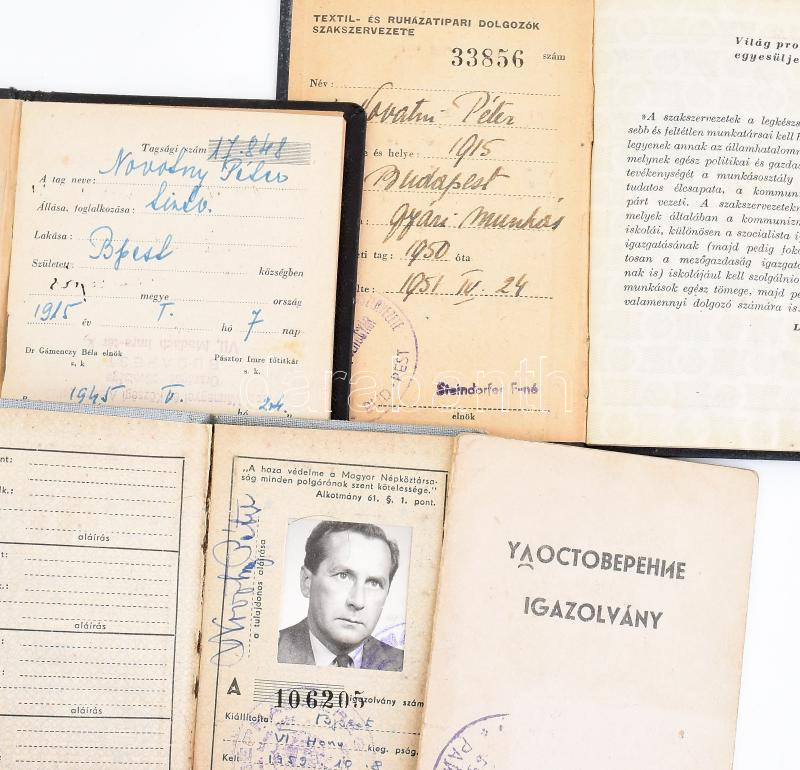 TEXTIL- ÉS RUHÁZATIPARI DOLGOZÓK
SZAKSZERVEZETE
33856 szám
Név:
Novatni Péter
e és helye: 1915
Budapest
gyári munkás
eti tag: 1950 óta
lte: 1951 IV 24
BUDAPEST
Steindorfer F-né
elnök
Világ pro
egyesülje
»A szakszervezetek a legkészs
sebb és feltétlen munkatársai kell l
legyenek annak az államhatalomn
melynek egész politikai és gazdas
tevékenységét a munkásosztály
tudatos élcsapata, a kommun
párt vezeti. A szakszervezetekn
melyek általában a kommunizm
iskolái, különösen a szocialista i
igazgatásának (majd pedig foko
tosan a mezőgazdaság igazgatá
nak is) iskolájául kell szolgálnio
munkások egész tömege, majd pe
valamennyi dolgozó számára is.
L
Tagsági szám 17.848
A tag neve: Novotny Péter
Állása, foglalkozása:
Lakása: Bpest
Született: községben
megye ország
1915 év I. hó 7 nap
Dr Gámenczy Béla elnök
s. k.
Pásztor Imre főtitkár
s. k.
VII, Madách Imre-tér
1945 hó 24.
darabanth
nt:
lk.:
aláírás
t:
.:
aláírás
:
aláírás
„A haza védelme a Magyar Népköztársa-
ság minden polgárának szent kötelessége."
Alkotmány 61. §. 1. pont.
a tulajdonos aláírása
A 106205 igazolvány szám
Kiállította: Bpest
VI. Hony kieg. pság.
Kelt: 1959. 10. 8
УДОСТОВЕРЕНИЕ
IGAZOLVÁNY